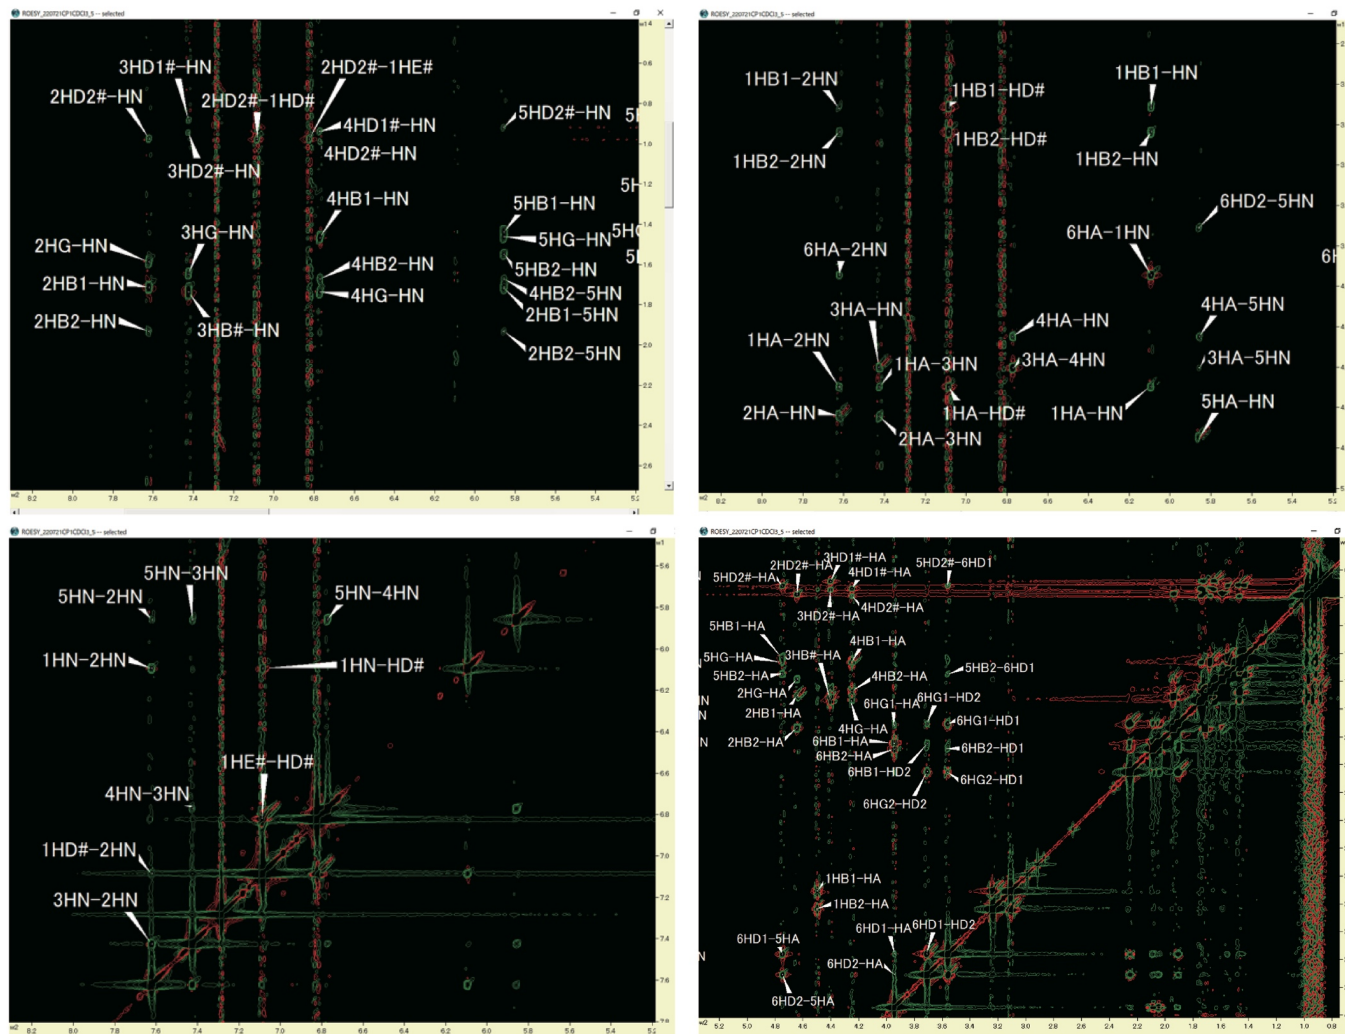 ROESY_220721CP1CDCl3_5 -- selected
3HD1#-HN
2HD2#-1HE#
2HD2#-HN
2HD2#-1HD#
4HD1#-HN
5HD2#-HN
4HD2#-HN
3HD2#-HN
4HB1-HN
5HB1-HN
3HG-HN
2HG-HN
5HG-HN
4HB2-HN
5HB2-HN
4HB2-5HN
2HB1-HN
4HG-HN
2HB1-5HN
2HB2-HN
3HB#-HN
2HB2-5HN
w1
0.6
0.8
1.0
1.2
1.4
1.6
1.8
2.0
2.2
2.4
2.6
w2 8.2 8.0 7.8 7.6 7.4 7.2 7.0 6.8 6.6 6.4 6.2 6.0 5.8 5.6 5.4 5.2
ROESY_220721CP1CDCl3_5 -- selected
1HB1-2HN
1HB1-HD#
1HB1-HN
1HB2-HD#
1HB2-2HN
1HB2-HN
6HD2-5HN
6HA-2HN
6HA-1HN
3HA-HN
4HA-HN
4HA-5HN
1HA-2HN
1HA-3HN
3HA-4HN
3HA-5HN
2HA-HN
1HA-HD#
1HA-HN
5HA-HN
2HA-3HN
w2 8.2 8.0 7.8 7.6 7.4 7.2 7.0 6.8 6.6 6.4 6.2 6.0 5.8 5.6 5.4 5.2
ROESY_220721CP1CDCl3_5 -- selected
5HN-3HN
5HN-2HN
5HN-4HN
1HN-2HN
1HN-HD#
1HE#-HD#
4HN-3HN
1HD#-2HN
3HN-2HN
w1
5.6
5.8
6.0
6.2
6.4
6.6
6.8
7.0
7.2
7.4
7.6
w2 8.2 8.0 7.8 7.6 7.4 7.2 7.0 6.8 6.6 6.4 6.2 6.0 5.8 5.6 5.4 5.2
ROESY_220721CP1CDCl3_5 -- selected
3HD1#-HA
2HD2#-HA
4HD1#-HA
5HD2#-6HD1
5HD2#-HA
4HD2#-HA
3HD2#-HA
5HB1-HA
4HB1-HA
3HB#-HA
5HG-HA
5HB2-6HD1
5HB2-HA
4HB2-HA
2HG-HA
6HG1-HA
6HG1-HD2
2HB1-HA
4HG-HA
6HG1-HD1
2HB2-HA
6HB1-HA
6HB2-HD1
6HB2-HA
6HB1-HD2
6HG2-HD1
6HG2-HD2
1HB1-HA
1HB2-HA
6HD1-5HA
6HD1-HA
6HD1-HD2
6HD2-HA
6HD2-5HA
w2 5.0 4.8 4.6 4.4 4.2 4.0 3.8 3.6 3.4 3.2 3.0 2.8 2.6 2.4 2.2 2.0 1.8 1.6 1.4 1.2 1.0 0.8